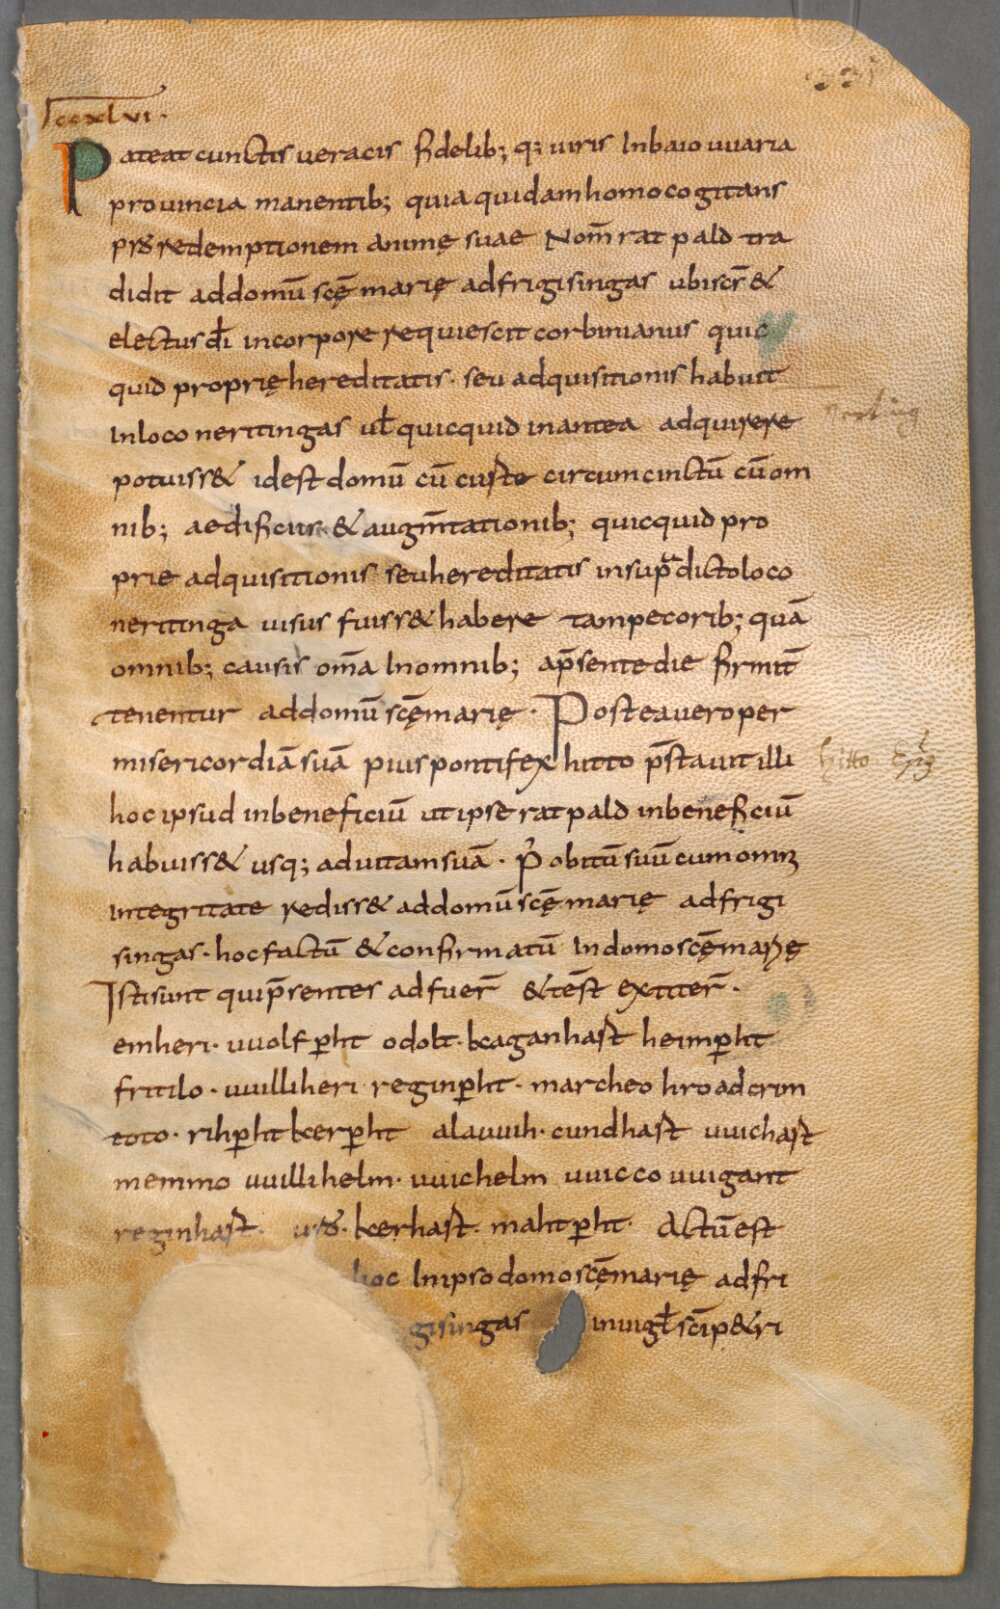 231
ccxlvi.
Pateat cunctis veracis fidelib; q; viris In baiouuaria
provincia manentib; quia quidam homo cogitans
pro redemptionem animę suae Nom̄ ratpald tra
didit ad domū scę̄ marię ad frigisingas ubi scr̄ &
electus dī in corpore requiescit corbinianus quic
quid proprię hereditatis. seu adquisitionis habuit
In loco neritingas vel̄ quicquid in antea adquirere
potuiss& id est domū cū curte circumcinctū cū om
nib; aedificiis & augm̄tationib; quicquid pro
prie adquisitionis seu hereditatis in supradicto loco
neritinga visus fuiss& habere tam pecorib; quā
omnib; causis om̄a In omnib; a p̄sente die firmit̄
tenentur ad domū scę̄ marię. Postea vero per
misericordiā suā pius pontifex hitto p̄stavit illi
hoc ipsud in beneficiū ut ipse ratpald in beneficiū
habuiss& usq; ad vitam suā. P̄ obitū suū cum omni
integritate rediss& ad domū scę̄ marię ad frigi
singas. hoc factū & confirmatū In domo scę̄ marię
Isti sunt qui p̄sentes adfuer̄ & tēst extiter̄.
emheri. uuolfp̄ht odolt. kaganhast heimp̄ht
fritilo. uuilliheri reginp̄ht. marcheo hroadcrim
toto. rihp̄ht kerp̄ht alauuih. cundhast uuichast
memmo uuillihelm. uuichelm uuicco uuigant
reginhast. urs. kerhast. mahtp̄ht. Actū est
hoc In ipso domo scę̄ marię ad fri
gisingas in vigl̄ scī p&ri
nerting
hitto ep̄s